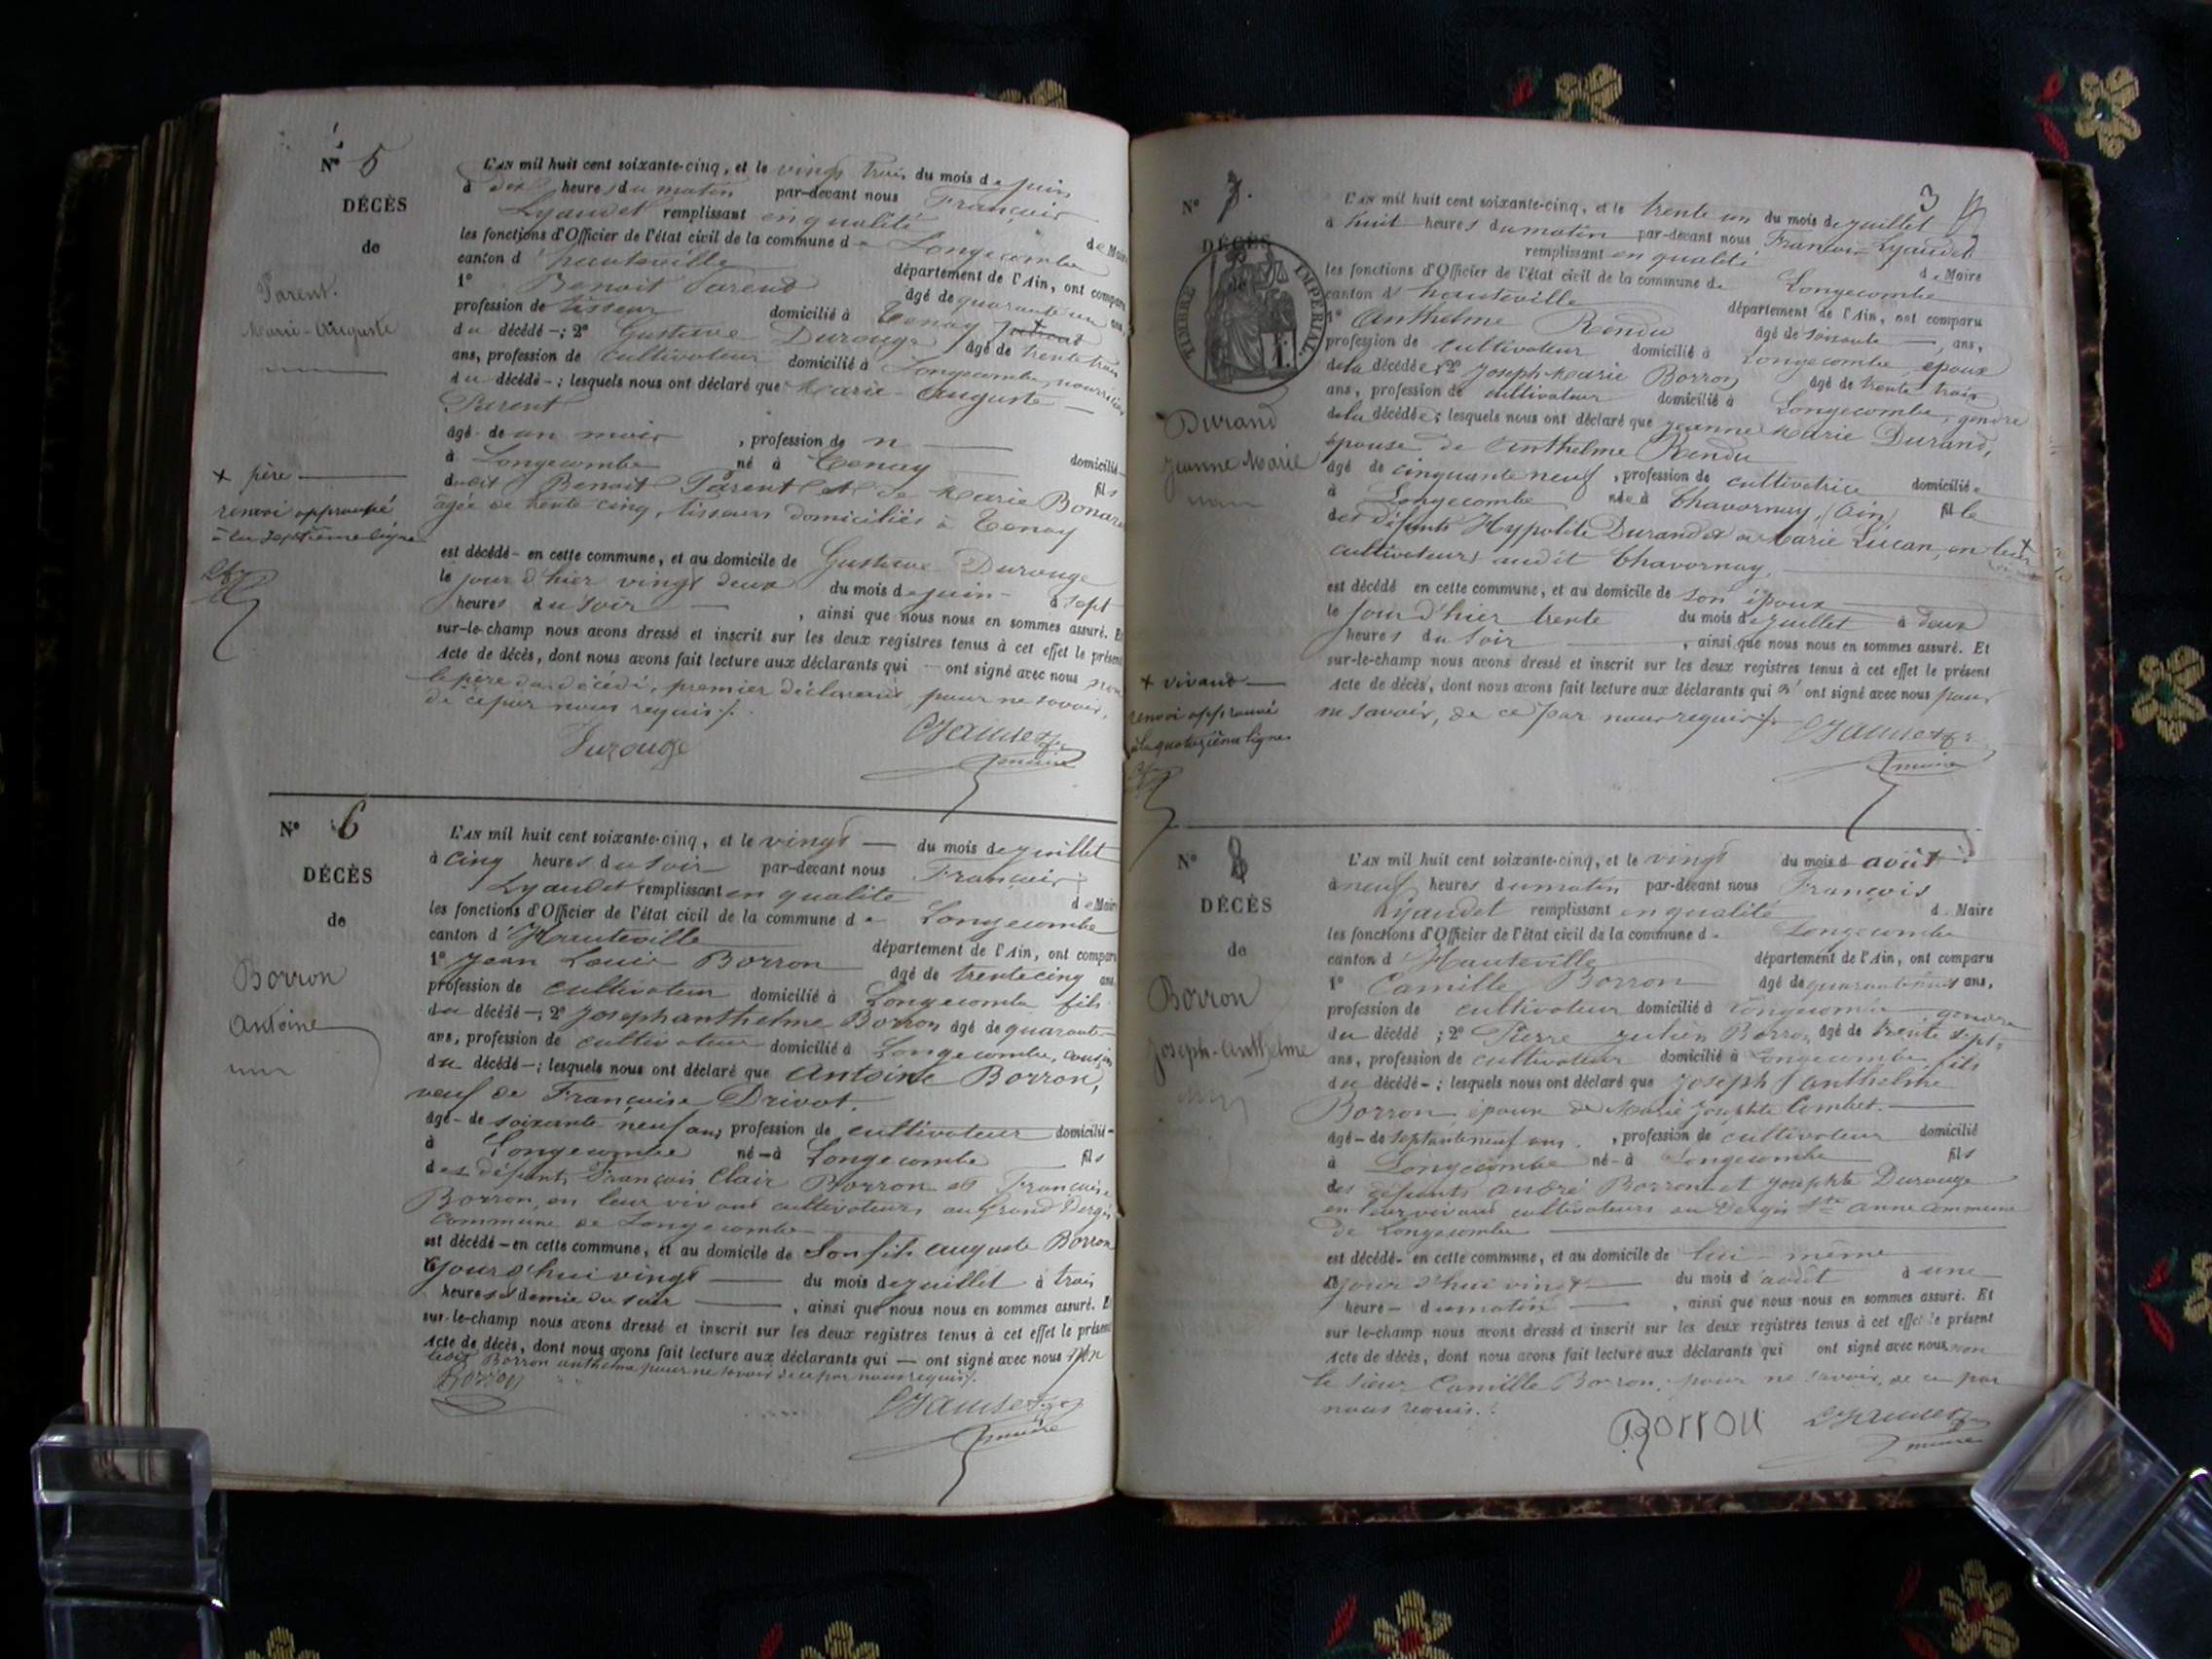 N° 5
DÉCÈS
de
Parent.
Marie-Auguste
L'AN mil huit cent soixante-cinq, et le vingt trois du mois de juin
à dix heures du matin par-devant nous François
Lyaudet remplissant en qualité de Maire
les fonctions d'Officier de l'état civil de la commune de Longecombe
canton d'hauteville département de l'Ain, ont comparu
1° Benoit Parent âgé de quarante un ans,
profession de tisseur domicilié à Tenay
du décédé ; 2° Gustave Durouge âgé de trente trois
ans, profession de cultivateur domicilié à Longecombe, nourricier
du décédé ; lesquels nous ont déclaré que Marie-Auguste
Parent
âgé de un mois , profession de n
domicilié
à Longecombe né à Tenay fils
dudit Benoit Parent et de Marie
âgée de trente cinq, tisseurs domiciliés à Tenay
est décédé en cette commune, et au domicile de Gustave Durouge
le jour d'hier vingt deux du mois de juin à sept
heures du soir , ainsi que nous nous en sommes assuré. Et
sur-le-champ nous avons dressé et inscrit sur les deux registres tenus à cet effet le présent
Acte de décès, dont nous avons fait lecture aux déclarants qui ont signé avec nous non
le père du décédé, premier déclarant, pour ne savoir,
de ce par nous requis.
Durouge Lyaudet
maire
+ père
renvoi approuvé
à la septième ligne
N° 6
DÉCÈS
de
Borron
Antoine
L'AN mil huit cent soixante-cinq, et le vingt du mois de juillet
à cinq heures du soir par-devant nous François
Lyaudet remplissant en qualité de Maire
les fonctions d'Officier de l'état civil de la commune de Longecombe
canton d'Hauteville département de l'Ain, ont comparu
1° Jean Louis Borron âgé de trente cinq ans
profession de cultivateur domicilié à Longecombe fils
du décédé ; 2° Joseph anthelme Borron âgé de quarante
ans, profession de cultivateur domicilié à Longecombe, cousin
du décédé ; lesquels nous ont déclaré que Antoine Borron,
veuf de Françoise Drivot.
âgé de soixante neuf ans, profession de cultivateur domicilié
à Longecombe né à Longecombe fils
des défunts François Clair Borron et Françoise
Borron, en leur vivant cultivateurs au Grand Dergis
commune de Longecombe
est décédé en cette commune, et au domicile de Son fils auguste Borron
jourd'hui vingt du mois de juillet à trois
heures et demie du soir , ainsi que nous nous en sommes assuré. Et
sur-le-champ nous avons dressé et inscrit sur les deux registres tenus à cet effet le présent
Acte de décès, dont nous avons fait lecture aux déclarants qui ont signé avec nous non
ledit Borron anthelme pour ne savoir de ce par nous requis.
Borron
Lyaudet
maire
3
N° 7.
DÉCÈS
TIMBRE IMPÉRIAL
Durand
Jeanne Marie
L'AN mil huit cent soixante-cinq, et le trente un du mois de juillet
à huit heures du matin par-devant nous François Lyaudet
remplissant en qualité de Maire
les fonctions d'Officier de l'état civil de la commune de Longecombe
canton d'hauteville département de l'Ain, ont comparu
1° Anthelme Rendu âgé de soixante , ans,
profession de cultivateur domicilié à Longecombe, époux
de la décédée ; 2° Joseph-Marie Borron âgé de trente trois
ans, profession de cultivateur domicilié à Longecombe, gendre
de la décédée ; lesquels nous ont déclaré que Jeanne Marie Durand,
épouse de Anthelme Rendu
âgé de cinquante neuf , profession de cultivatrice domiciliée
à Longecombe née à Chavornay, (Ain) fille
des défunts Hypolite Durand et de Marie Lucan, en leur +
cultivateurs audit Chavornay,
est décédé en cette commune, et au domicile de son époux
le jour d'hier trente du mois de juillet à deux
heures du soir , ainsi que nous nous en sommes assuré. Et
sur-le-champ nous avons dressé et inscrit sur les deux registres tenus à cet effet le présent
Acte de décès, dont nous avons fait lecture aux déclarants qui n'ont signé avec nous pour
ne savoir, de ce par nous requis. Lyaudet
maire
+ vivant
renvoi approuvé
à la quatorzième ligne
N° 8
DÉCÈS
de
Borron
Joseph-Anthelme
L'AN mil huit cent soixante-cinq, et le vingt du mois d'août
à neuf heures du matin par-devant nous François
Lyaudet remplissant en qualité de Maire
les fonctions d'Officier de l'état civil de la commune de Longecombe
canton d'Hauteville département de l'Ain, ont comparu
1° Camille Borron âgé de quarante huit ans,
profession de cultivateur domicilié à Longecombe, gendre
du décédé ; 2° Pierre Julien Borron âgé de trente sept
ans, profession de cultivateur domicilié à Longecombe, fils
du décédé ; lesquels nous ont déclaré que Joseph Anthelme
Borron, époux de Marie Josephte Combet.
âgé de septante neuf ans , profession de cultivateur domicilié
à Longecombe né à Longecombe fils
des défunts André Borron et Josephte Durouge
en leur vivant cultivateurs au Dergis Ste Anne commune
de Longecombe
est décédé en cette commune, et au domicile de lui-même
jourd'hui vingt du mois d'août à une
heure du matin , ainsi que nous nous en sommes assuré. Et
sur le-champ nous avons dressé et inscrit sur les deux registres tenus à cet effet le présent
Acte de décès, dont nous avons fait lecture aux déclarants qui ont signé avec nous non
le sieur Camille Borron, pour ne savoir, de ce par
nous requis.
Borron Lyaudet
maire